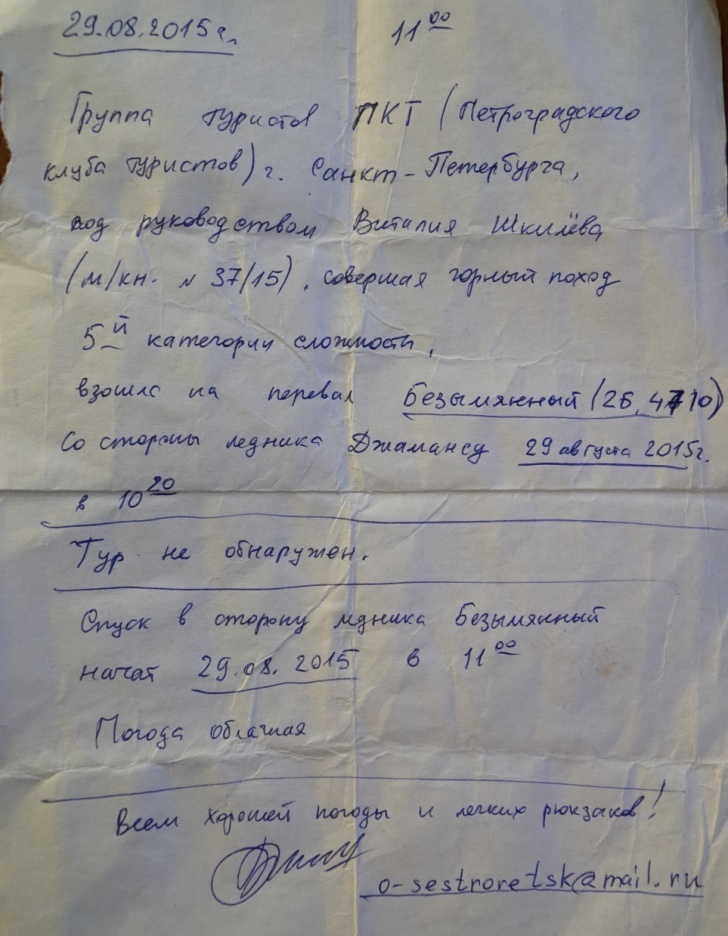 29.08.2015г. 11⁰⁰
Группа туристов ПКТ (Петроградского
клуба туристов) г. Санкт-Петербурга,
под руководством Виталия Шкилёва
(м/кн. № 37/15), совершая горный поход
5й категории сложности,
взошла на перевал Безымянный (2Б, 4710)
со стороны ледника Джамансу 29 августа 2015г.
в 10²⁰
Тур не обнаружен.
Спуск в сторону ледника Безымянный
начат 29.08.2015 в 11⁰⁰
Погода облачная
Всем хорошей погоды и легких рюкзаков!
o-sestroretsk@mail.ru